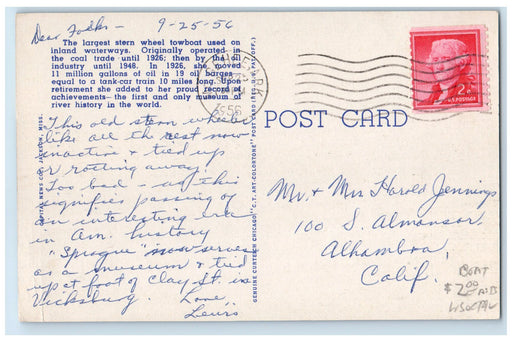 Dear Folks - 9-25-56
The largest stern wheel towboat used on
inland waterways. Originally operated in
the coal trade until 1926; then by the oil
industry until 1948. In 1926, she moved
11 million gallons of oil in 19 oil barges,
equal to a tank-car train 10 miles long. Upon
retirement she added to her proud record of
achievements—the first and only museum of
river history in the world.
This old stern wheeler
like all the rest now
inactive & tied up
or rotting away.
Too bad - as this
signifies passing of
an interesting era
in Am. history
"Sprague" now serves
as a museum & tied
up at foot of Clay St. in
Vicksburg. Love,
Lewis
CAPITAL NEWS CO., JACKSON, MISS.
GENUINE CURTEICH-CHICAGO "C.T. ART-COLORTONE" POST CARD (REG. U.S. PAT. OFF.)
1956
2¢
U.S. POSTAGE
POST CARD
Mr. & Mrs Harold Jennings
100 S. Almansor
Alhambra,
Calif.
BOAT
$2.00